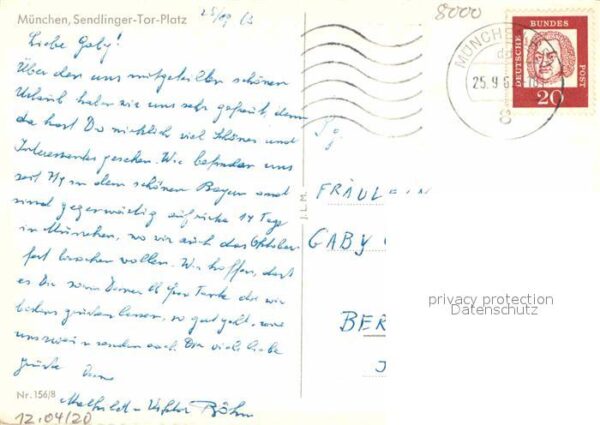 München, Sendlinger-Tor-Platz
25/09 63
8000
Liebe Gaby!
Über den uns mitgeteilten schönen
Urlaub haben wir uns sehr gefreut, denn
da hast Du wirklich viel Schönes und
Interessantes gesehen. Wir befinden uns
seit 7/9 in dem schönen Bayern und
sind gegenwärtig auf 14 Tage
in München, wo wir auch das Oktober
fest besuchen wollen. Wir hoffen, dass
es Dir Deiner Tante die wir
grüssen lassen, so gut geht, wie
uns Dir viele liebe
Grüsse
Böhm
Nr. 156/8
12.04/20
J.L.M.
MÜNCHE
25.9.6
8
DEUTSCHE
BUNDES
POST
20
FRÄULEIN
GABY
BER
privacy protection
Datenschutz